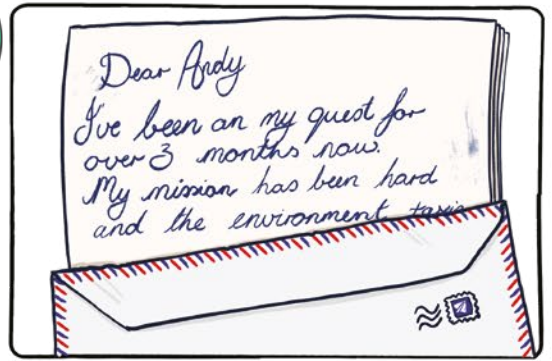 Dear Andy
I've been on my quest for
over 3 months now.
My mission has been hard
and the environment